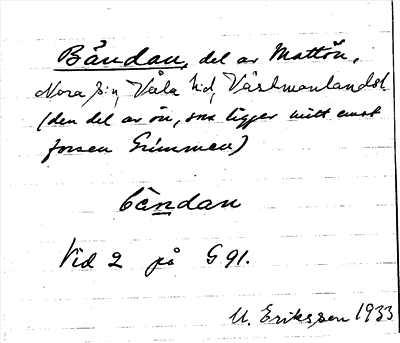 Båndan, del av Mattön,
Nora sn, Våla hd, Västmanlandsl
(den del av ön, som ligger mitt emot
forsen Grimmen)
bå̀ndan
Vid 2 på G 91.
M. Eriksson 1933